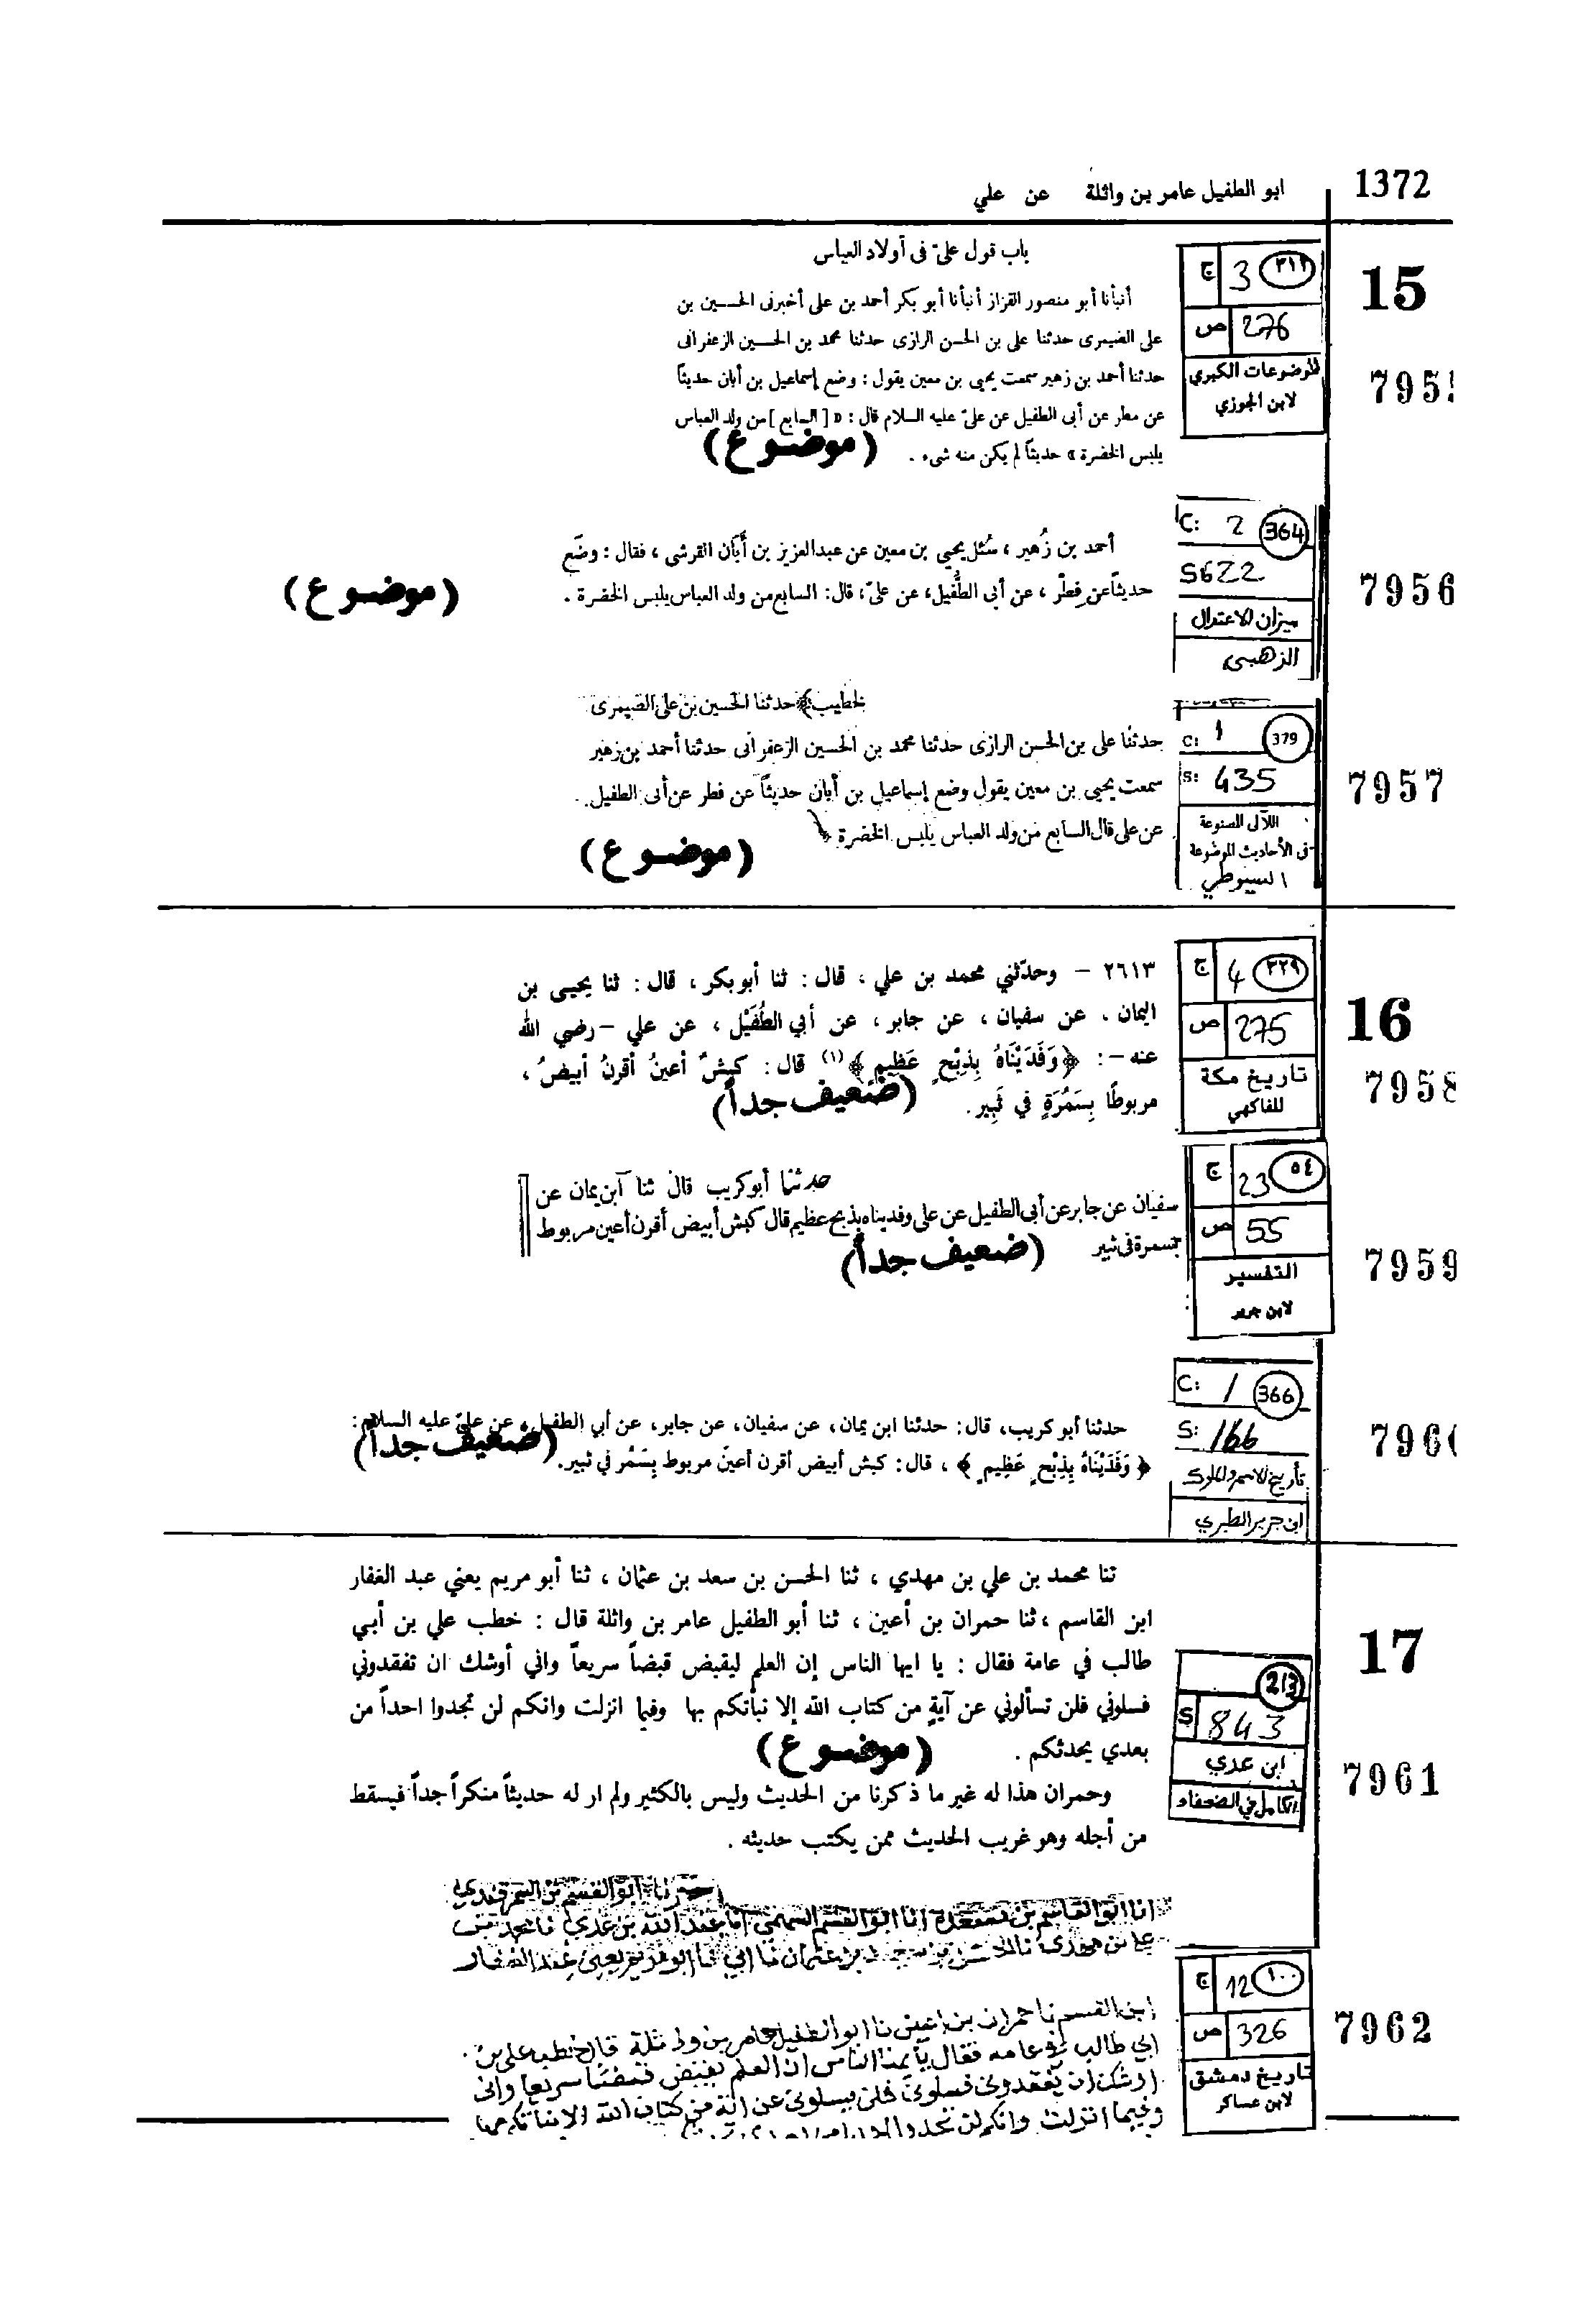 1372
ابو الطفيل عامر بن واثلة عن علي
15
ج 3 ٣١٢
ص 276
الموضوعات الكبري
لابن الجوزي
795
باب قول علىّ فى أولاد العباس
أنبأنا أبو منصور القزاز أنبأنا أبو بكر أحمد بن على أخبرنى الحسين بن
على الضيمرى حدثنا على بن الحسن الرازى حدثنا محمد بن الحسين الزعفرانى
حدثنا أحمد بن زهير سمعت يحيى بن معين يقول : وضع إسماعيل بن أبان حديثاً
عن مطر عن أبى الطفيل عن علىّ عليه السلام قال : « [ السابع ] من ولد العباس
يلبس الخضرة » حديثاً لم يكن منه شىء .
(موضوع)
C: 2 364
S622
ميزان الاعتدال
الذهبي
7956
أحمد بن زُهير ، سُئل يحيى بن معين عن عبدالعزيز بن أبَان القرشى ، فقال : وضَع
حديثاً عن فِطْر ، عن أبى الطُّفيل، عن علىّ، قال: السابع من ولد العباس يلبس الخضرة .
(موضوع)
C: 1 379
S: 435
اللآلى المصنوعة
فى الأحاديث الموضوعة
السيوطي
7957
الخطيب﴾ حدثنا الحسين بن على الضيمرى
حدثنا على بن الحسن الرازى حدثنا محمد بن الحسين الزعفرانى حدثنا أحمد بن زهير
سمعت يحيى بن معين يقول وضع إسماعيل بن أبان حديثاً عن فطر عن أبى الطفيل
عن على قال السابع من ولد العباس يلبس الخضرة
(موضوع)
16
ج 4 ٢٢٩
ص 275
تاريخ مكة
للفاكهي
7958
٢٦١٣ – وحدّثني محمد بن علي ، قال : ثنا أبو بكر ، قال : ثنا يحيى بن
اليمان ، عن سفيان ، عن جابر ، عن أبي الطُفَيْل ، عن علي – رضي الله
عنه – : ﴿ وَفَدَيْنَاهُ بِذِبْحٍ عَظِيمٍ ﴾(١) قال : كبشٌ أعينُ أقرنُ أبيضُ ،
مربوطًا بِسَمُرَةٍ في ثَبِير .
(ضعيف جداً)
ج 23 ٥٤
ص 55
التفسير
لابن جرير
7959
حدثنا أبو كريب قال ثنا ابن يمان عن
سفيان عن جابر عن أبى الطفيل عن على وفديناه بذبح عظيم قال كبش أبيض أقرن أعين مربوط
بسمرة فى ثبير
(ضعيف جداً)
C: 1 366
S: 166
تأريخ الامم والملوك
ابن جرير الطبري
796
حدثنا أبو كريب، قال: حدثنا ابن يمان، عن سفيان، عن جابر، عن أبي الطفيل، عن عليّ عليه السلام:
﴿ وَفَدَيْنَاهُ بِذِبْحٍ عَظِيمٍ ﴾ ، قال: كبش أبيض أقرن أعينَ مربوط بِسَمُر في ثبير.
(ضعيف جداً)
17
213
S 843
ابن عدي
الكامل في الضعفاء
7961
ثنا محمد بن علي بن مهدي ، ثنا الحسن بن سعد بن عثمان ، ثنا أبو مريم يعني عبد الغفار
ابن القاسم ، ثنا حمران بن أعين ، ثنا أبو الطفيل عامر بن واثلة قال : خطب علي بن أبي
طالب في عامة فقال : يا ايها الناس إن العلم ليقبض قبضاً سريعاً واني أوشك ان تفقدوني
فسلوني فلن تسألوني عن آية من كتاب الله إلا نبأتكم بها وفيما انزلت وانكم لن تجدوا احداً من
بعدي يحدثكم .
(موضوع)
وحمران هذا له غير ما ذكرنا من الحديث وليس بالكثير ولم ار له حديثاً منكراً جداً فيسقط
من أجله وهو غريب الحديث ممن يكتب حديثه .
ج 12 ١٠٠
ص 326
تاريخ دمشق
لابن عساكر
7962
ابو القسم بن السمرقندي
انا ابو القاسم بن مسعدة انا ابو القسم السهمي انا عبد الله بن عدي نا محمد بن
علي بن مهدي نا الحسن بن سعيد بن عثمان نا ابي نا ابو مريم يعني عبد الغفار
ابن القسم نا حمران بن اعين نا ابو الطفيل عامر بن واثلة قال خطب علي بن
ابي طالب في عامه فقال يا أيها الناس ان العلم يقبض قبضا سريعا واني
اوشك ان تفقدوني فسلوني فلن تسلوني عن اية من كتاب الله الا نبأتكم بها
وفيما انزلت وانكم لن تجدوا